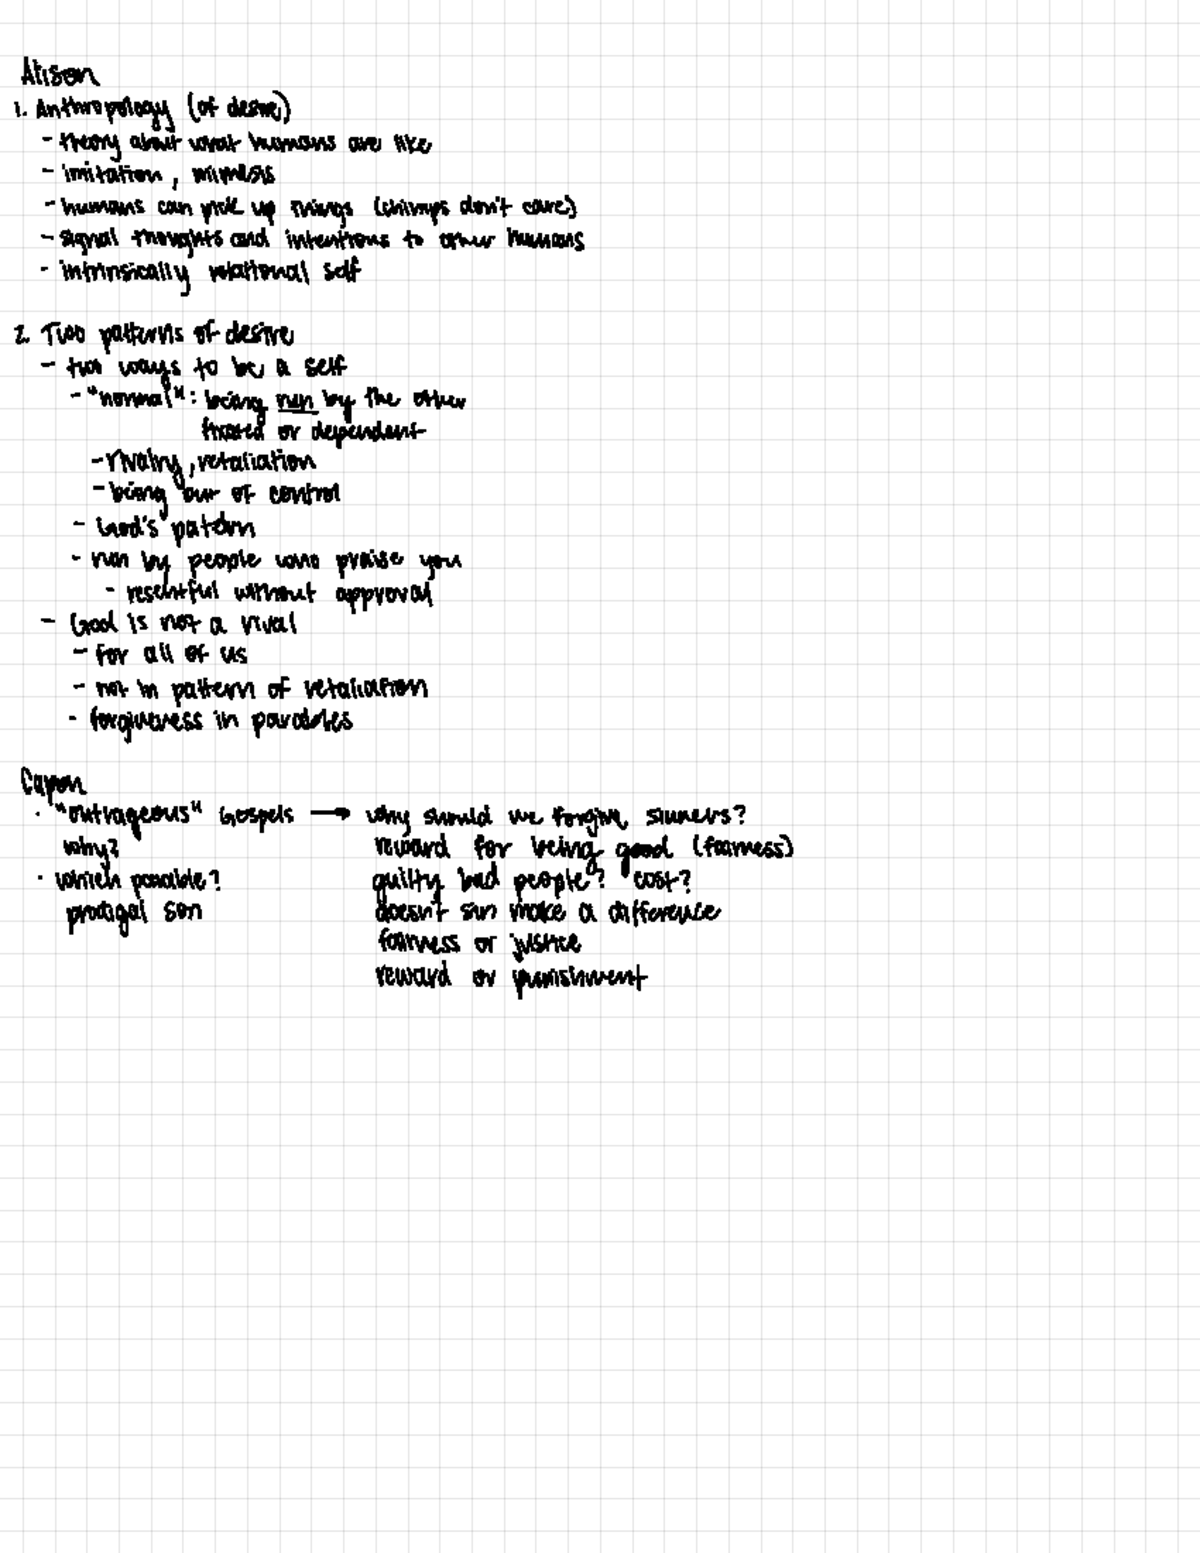 Alison
1. Anthropology (of desire)
- theory about what humans are like
- imitation, mimesis
- humans can pick up things (chimps don't care)
- signal thoughts and intentions to other humans
- intrinsically relational self
2. Two patterns of desire
- two ways to be a self
- "normal": being run by the other
fixated or dependent
- rivalry, retaliation
- being out of control
- God's pattern
- run by people who praise you
- resentful without approval
- God is not a rival
- for all of us
- not in pattern of retaliation
- forgiveness in parables
Capon
· "outrageous" Gospels → why should we forgive sinners?
why? reward for being good (fairness)
· which parable? guilty bad people? cost?
prodigal son doesn't sin make a difference
fairness or justice
reward or punishment